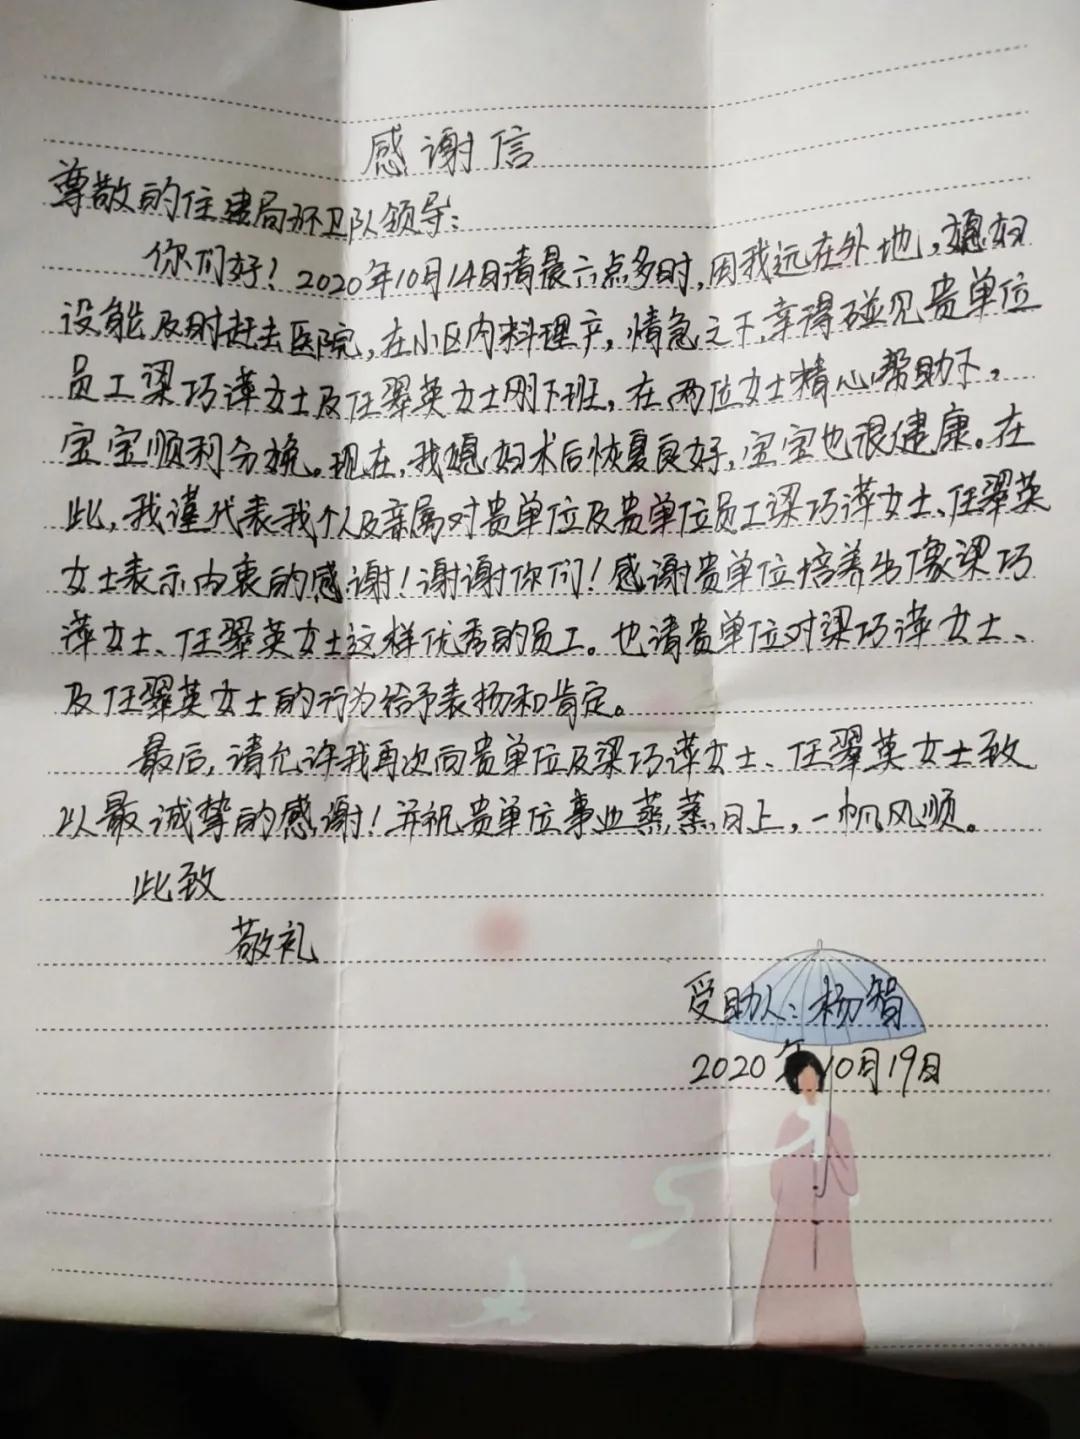 感谢信
尊敬的住建局环卫队领导：
你们好！2020年10月14日清晨六点多时，因我远在外地，媳妇
没能及时赶去医院，在小区内料理产，情急之下，幸得碰见贵单位
员工梁巧萍女士及任翠英女士刚下班，在两位女士精心帮助下，
宝宝顺利分娩。现在，我媳妇术后恢复良好，宝宝也很健康。在
此，我谨代表我个人及亲属对贵单位及贵单位员工梁巧萍女士、任翠英
女士表示内衷的感谢！谢谢你们！感谢贵单位培养出像梁巧
萍女士、任翠英女士这样优秀的员工。也请贵单位对梁巧萍女士、
及任翠英女士的行为给予表扬和肯定。
最后，请允许我再次向贵单位及梁巧萍女士、任翠英女士致
以最诚挚的感谢！并祝贵单位事业蒸蒸日上，一帆风顺。
此致
敬礼
受助人：杨智
2020年10月19日